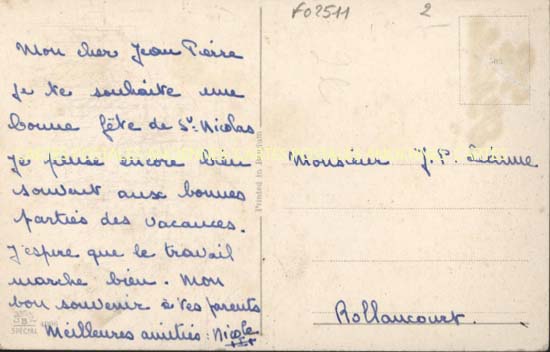 F02511
2
Mon cher Jean Pierre
je te souhaite une
bonne fête de St Nicolas
Je pense encore bien
souvent aux bonnes
parties des vacances.
J'espire que le travail
marche bien. Mon
bon souvenir à tes parents
Meilleures amitiés: Nicole
SPECIAL
Printed in Belgium
Monsieur J. P.
Rollancourt.